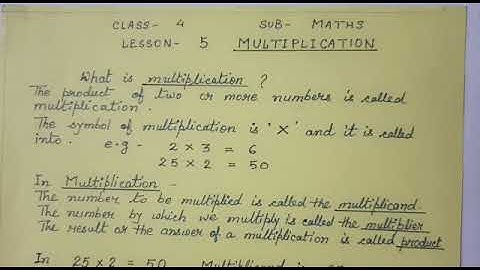 CLASS- 4 SUB- MATHS
LESSON- 5 MULTIPLICATION
What is multiplication ?
The product of two or more numbers is called
multiplication.
The symbol of multiplication is '×' and it is called
into. e.g - 2 × 3 = 6
25 × 2 = 50
In Multiplication -
The number to be multiplied is called the multiplicand
The number by which we multiply is called the multiplier
The result or the answer of a multiplication is called product
In 25 × 2 = 50